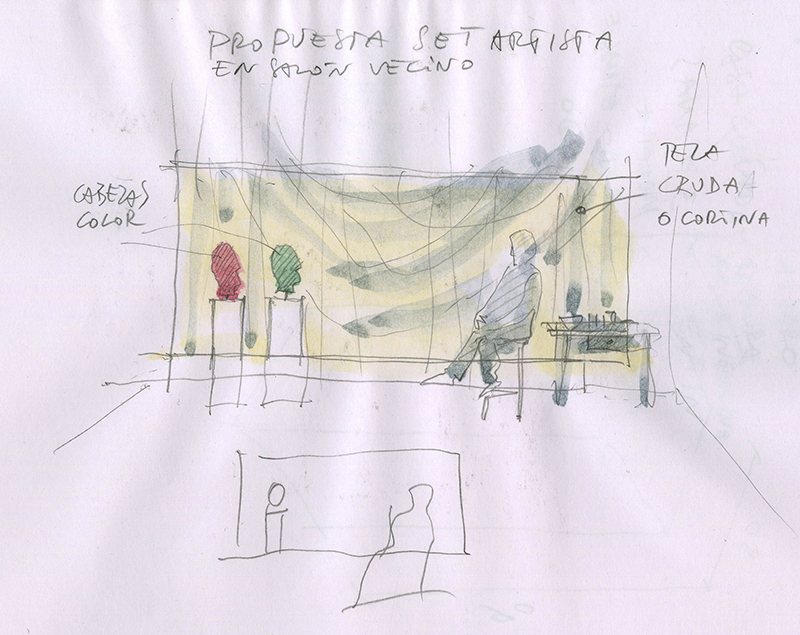 PROPUESTA SET ARTISTA
EN SALÓN VECINO
CABEZAS
COLOR
TELA
CRUDA
O CORTINA